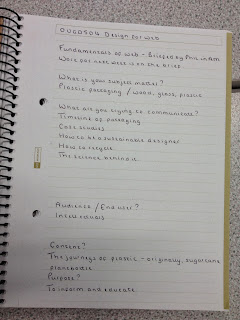 OUGD504 Design for Web
Fundamentals of web - Briefed by Phil in am
Work for next week is on the brief.
What is your subject matter?
Plastic packaging / wood, glass, plastic
What are you trying to communicate?
Timeline of packaging
Case studies
How to be a sustainable designer
How to recycle
The science behind it.
Audience / End user?
Intellectuals
Content?
The journeys of plastic - originally, sugarcane
Purpose?
To inform and educate.